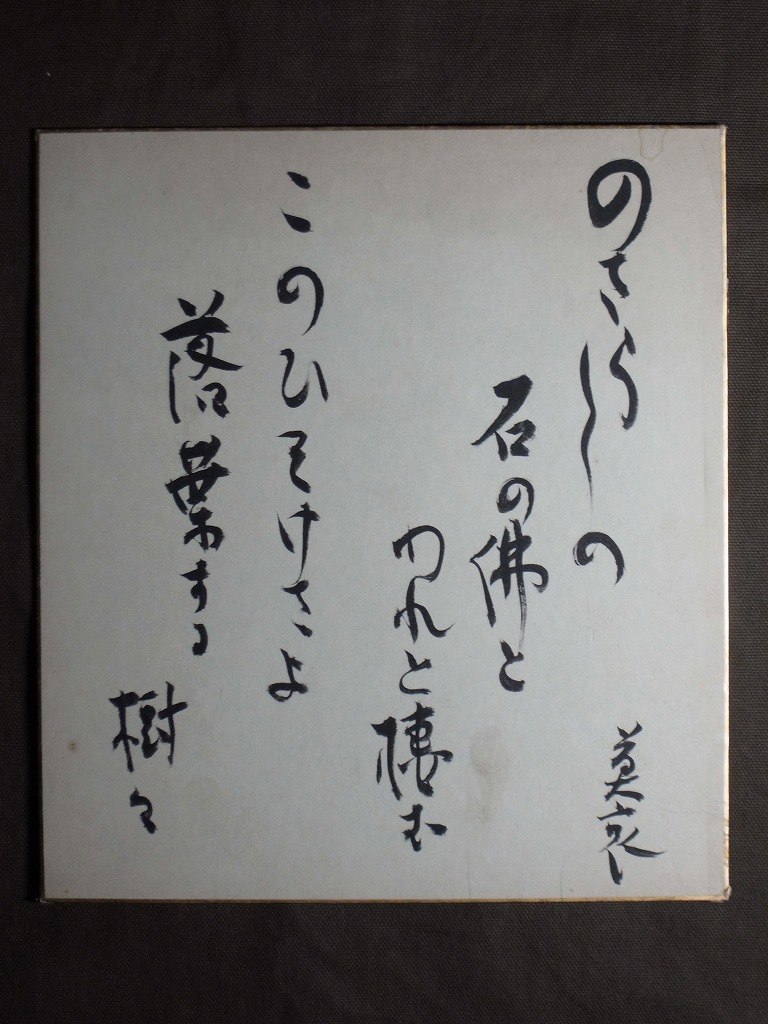 のさらしの
石の佛と
われと棲む
このひそけさよ
落葉する
樹々
莫哀